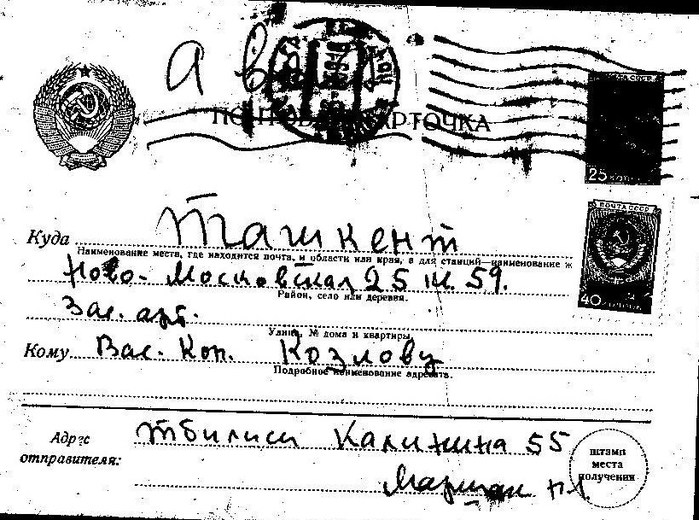 Авиа
ПОЧТОВАЯ КАРТОЧКА
ПОЧТА СССР
25 КОП
ПОЧТА СССР
40
Куда Ташкент
Наименование места, где находится почта, и области или края, а для станций—наименование ж
Ново-Московская 25 кв. 59.
Район, село или деревня.
Зас. арт.
Улица, № дома и квартиры
Кому Вас. Кон. Козлову
Подробное наименование адресата.
Адрес отправителя: Тбилиси Калинина 55
штамп
места
получения